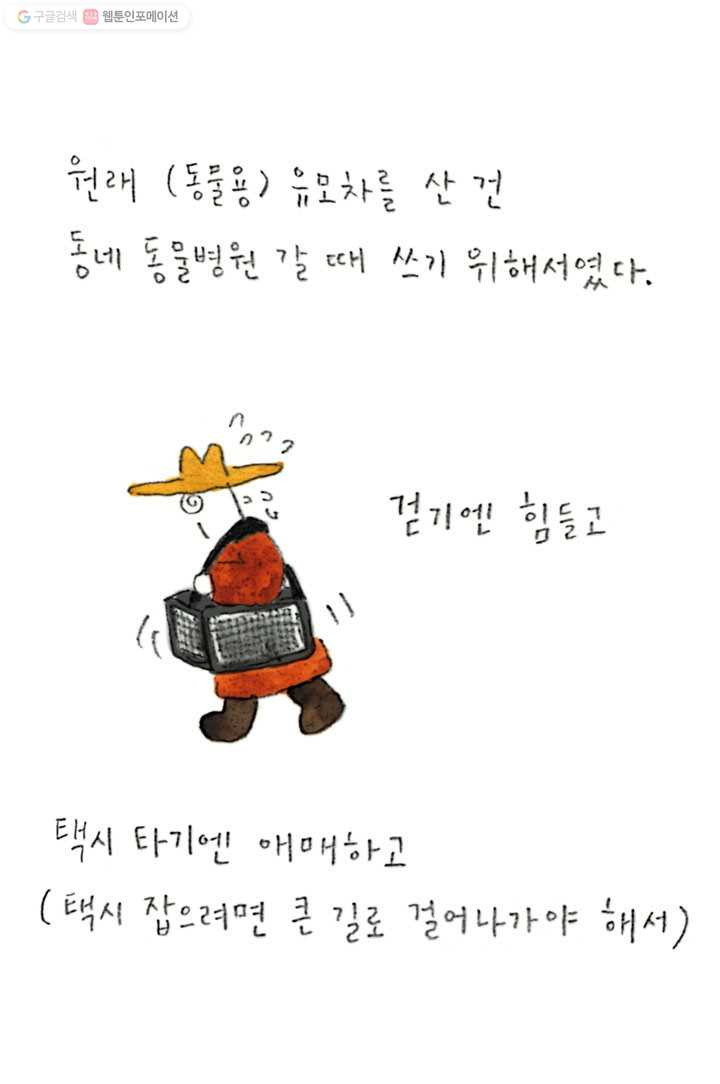 구글검색 웹툰인포메이션
원래 (동물용) 유모차를 산 건
동네 동물병원 갈 때 쓰기 위해서였다.
걷기엔 힘들고
택시 타기엔 애매하고
(택시 잡으려면 큰 길로 걸어나가야 해서)